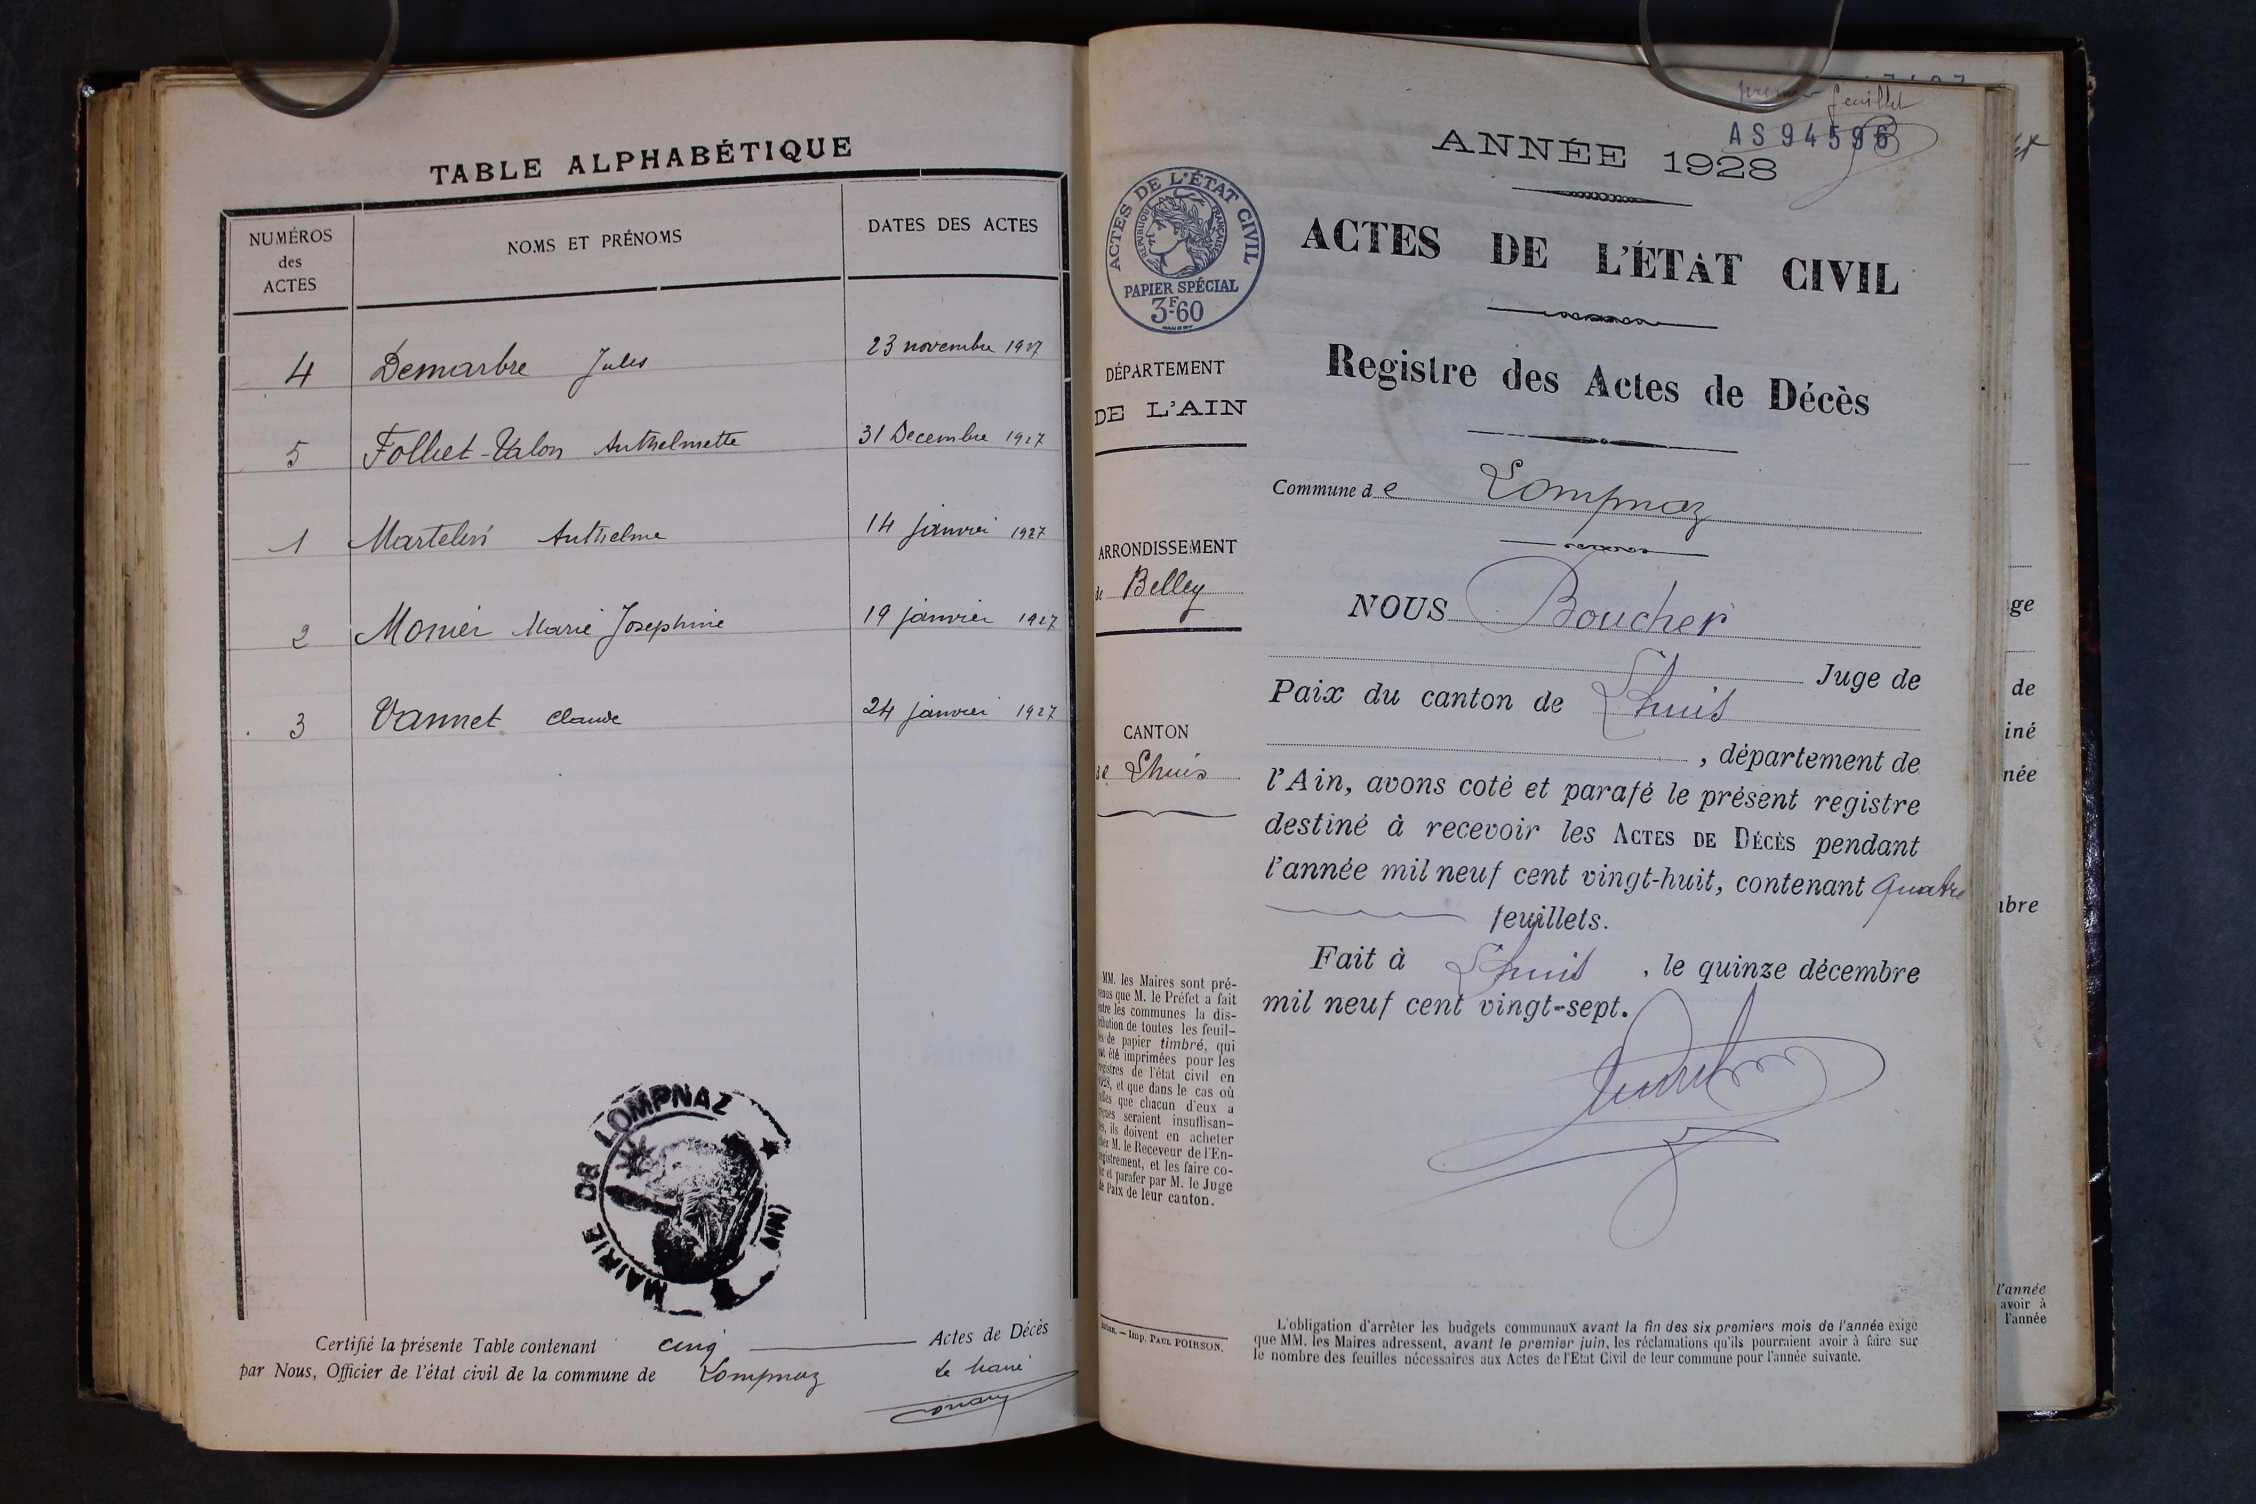 TABLE ALPHABÉTIQUE
NUMÉROS
des
ACTES
NOMS ET PRÉNOMS
DATES DES ACTES
4 Demarbre Jules 23 novembre 1927
5 Folliet-Valon Anthelmette 31 Decembre 1927
1 Martelin Anthelme 14 janvier 1927
2 Monier Marie Josephine 19 janvier 1927
3 Vannet Claude 24 janvier 1927
MAIRIE DE LOMPNAZ (AIN)
Certifié la présente Table contenant cinq Actes de Décès
par Nous, Officier de l'état civil de la commune de Lompnaz
Le Maire
premier feuillet
AS 94596
ANNÉE 1928
ACTES DE L'ÉTAT CIVIL
RÉPUBLIQUE FRANÇAISE
PAPIER SPÉCIAL
3F60
ACTES DE L'ÉTAT CIVIL
Registre des Actes de Décès
DÉPARTEMENT
DE L'AIN
Commune de Lompnaz
ARRONDISSEMENT
de Belley
NOUS Boucher
Juge de
Paix du canton de Lhuis
CANTON
de Lhuis
, département de
l'Ain, avons coté et parafé le présent registre
destiné à recevoir les ACTES DE DÉCÈS pendant
l'année mil neuf cent vingt-huit, contenant quatre
feuillets.
Fait à Lhuis, le quinze décembre
mil neuf cent vingt-sept.
MM. les Maires sont pré-
venus que M. le Préfet a fait
entre les communes la dis-
tribution de toutes les feuil-
les de papier timbré, qui
ont été imprimées pour les
registres de l'état civil en
1928, et que dans le cas où
celles que chacun d'eux a
reçues seraient insuffisan-
tes, ils doivent en acheter
chez M. le Receveur de l'En-
registrement, et les faire co-
ter et parafer par M. le Juge
de Paix de leur canton.
— Imp. PAUL POIRSON.
L'obligation d'arrêter les budgets communaux avant la fin des six premiers mois de l'année exige
que MM. les Maires adressent, avant le premier juin, les réclamations qu'ils pourraient avoir à faire sur
le nombre des feuilles nécessaires aux Actes de l'Etat Civil de leur commune pour l'année suivante.
ge
de
iné
née
bre
l'année
avoir à
l'année